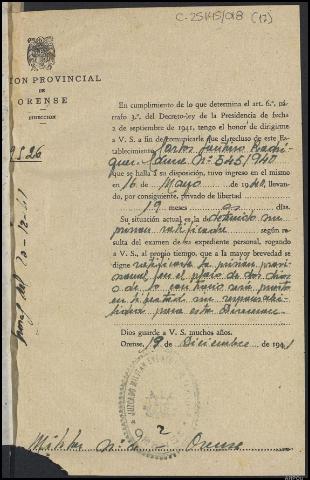 C-25145/018 (17)
ION PROVINCIAL
DE
ORENSE
DIRECCION
9526
En cumplimiento de lo que determina el art. 6.º, pá-
rrafo 3.º, del Decreto-ley de la Presidencia de fecha
2 de septiembre de 1941, tengo el honor de dirigirme
a V. S. a fin de comunicarle que el recluso de este Es-
tablecimiento Carlos
Nº 545/940
que se halla a su disposición, tuvo ingreso en el mismo
en 16 de Mayo de 1940, llevando,
por consiguiente, privado de libertad
19 meses días.
Su situación actual es la de detenido sin
prisión ratificada según re-
sulta del examen de su expediente personal, rogando
a V. S., al propio tiempo, que a la mayor brevedad se
digne ratificar la prisión provi-
sional, en el plazo de dos
de lo contrario será puesto
en libertad sin responsabi-
lidad para esta Dirección.
Dios guarde a V. S. muchos años.
Orense, 19 de Diciembre de 1941
JUZGADO MILITAR
Militar nº 2 Orense